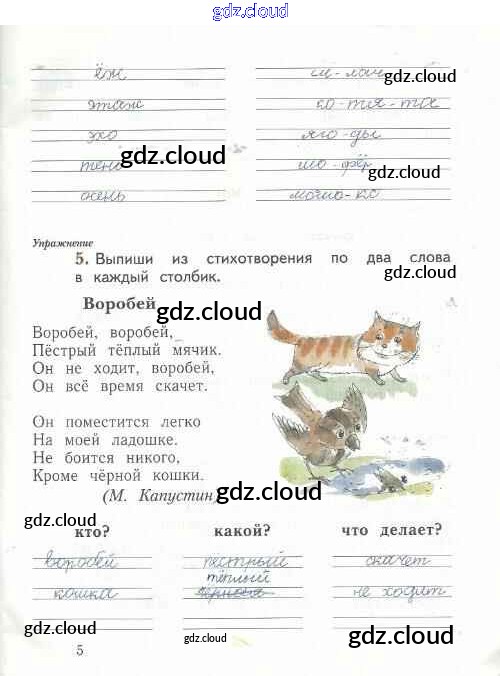 gdz.cloud
ёж
gdz.cloud
этаж
ко-тя-та
gdz.cloud
эхо
яго-ды
gdz.cloud
тень
шо-фёр
gdz.cloud
осень
моло-ко
Упражнение
5. Выпиши из стихотворения по два слова
в каждый столбик.
Воробей
gdz.cloud
Воробей, воробей,
Пёстрый тёплый мячик.
Он не ходит, воробей,
Он всё время скачет.
gdz.cloud
Он поместится легко
На моей ладошке.
Не боится никого,
Кроме чёрной кошки.
(М. Капустин)
gdz.cloud
gdz.cloud
кто? какой? что делает?
воробей пёстрый скачет
gdz.cloud
тёплый
кошка не ходит
gdz.cloud
gdz.cloud
gdz.cloud
5